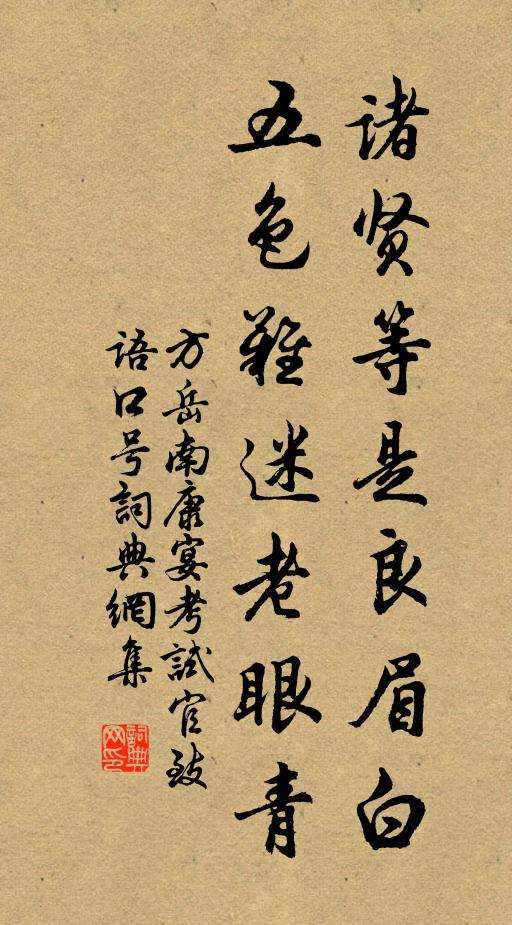 诸贤等是良眉白
五色难迷老眼青
方岳南康宴考試官致
语口号詞典網集
詞典网印